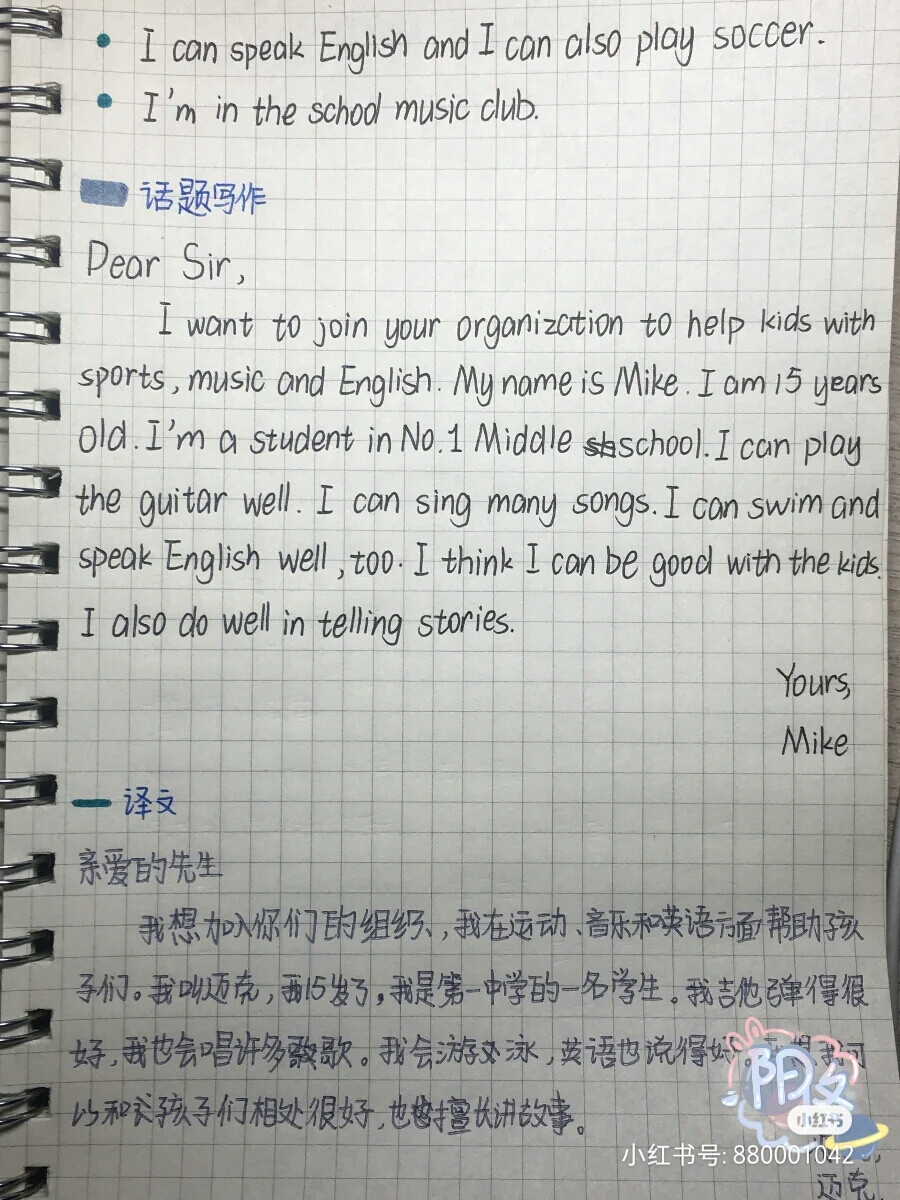 I can speak English and I can also play soccer.
I'm in the school music club.
话题写作
Dear Sir,
I want to join your organization to help kids with
sports, music and English. My name is Mike. I am 15 years
old. I'm a student in No.1 Middle school. I can play
the guitar well. I can sing many songs. I can swim and
speak English well, too. I think I can be good with the kids.
I also do well in telling stories.
Yours,
Mike
译文
亲爱的先生
我想加入你们的组织、,我在运动、音乐和英语方面帮助孩
子们。我叫迈克,我15岁了,我是第一中学的一名学生。我吉他弹得很
好,我也会唱许多歌。我会游泳,英语也说得好。我想我可
以和孩子们相处很好,也擅长讲故事。
小红书
小红书号: 880001042
迈克